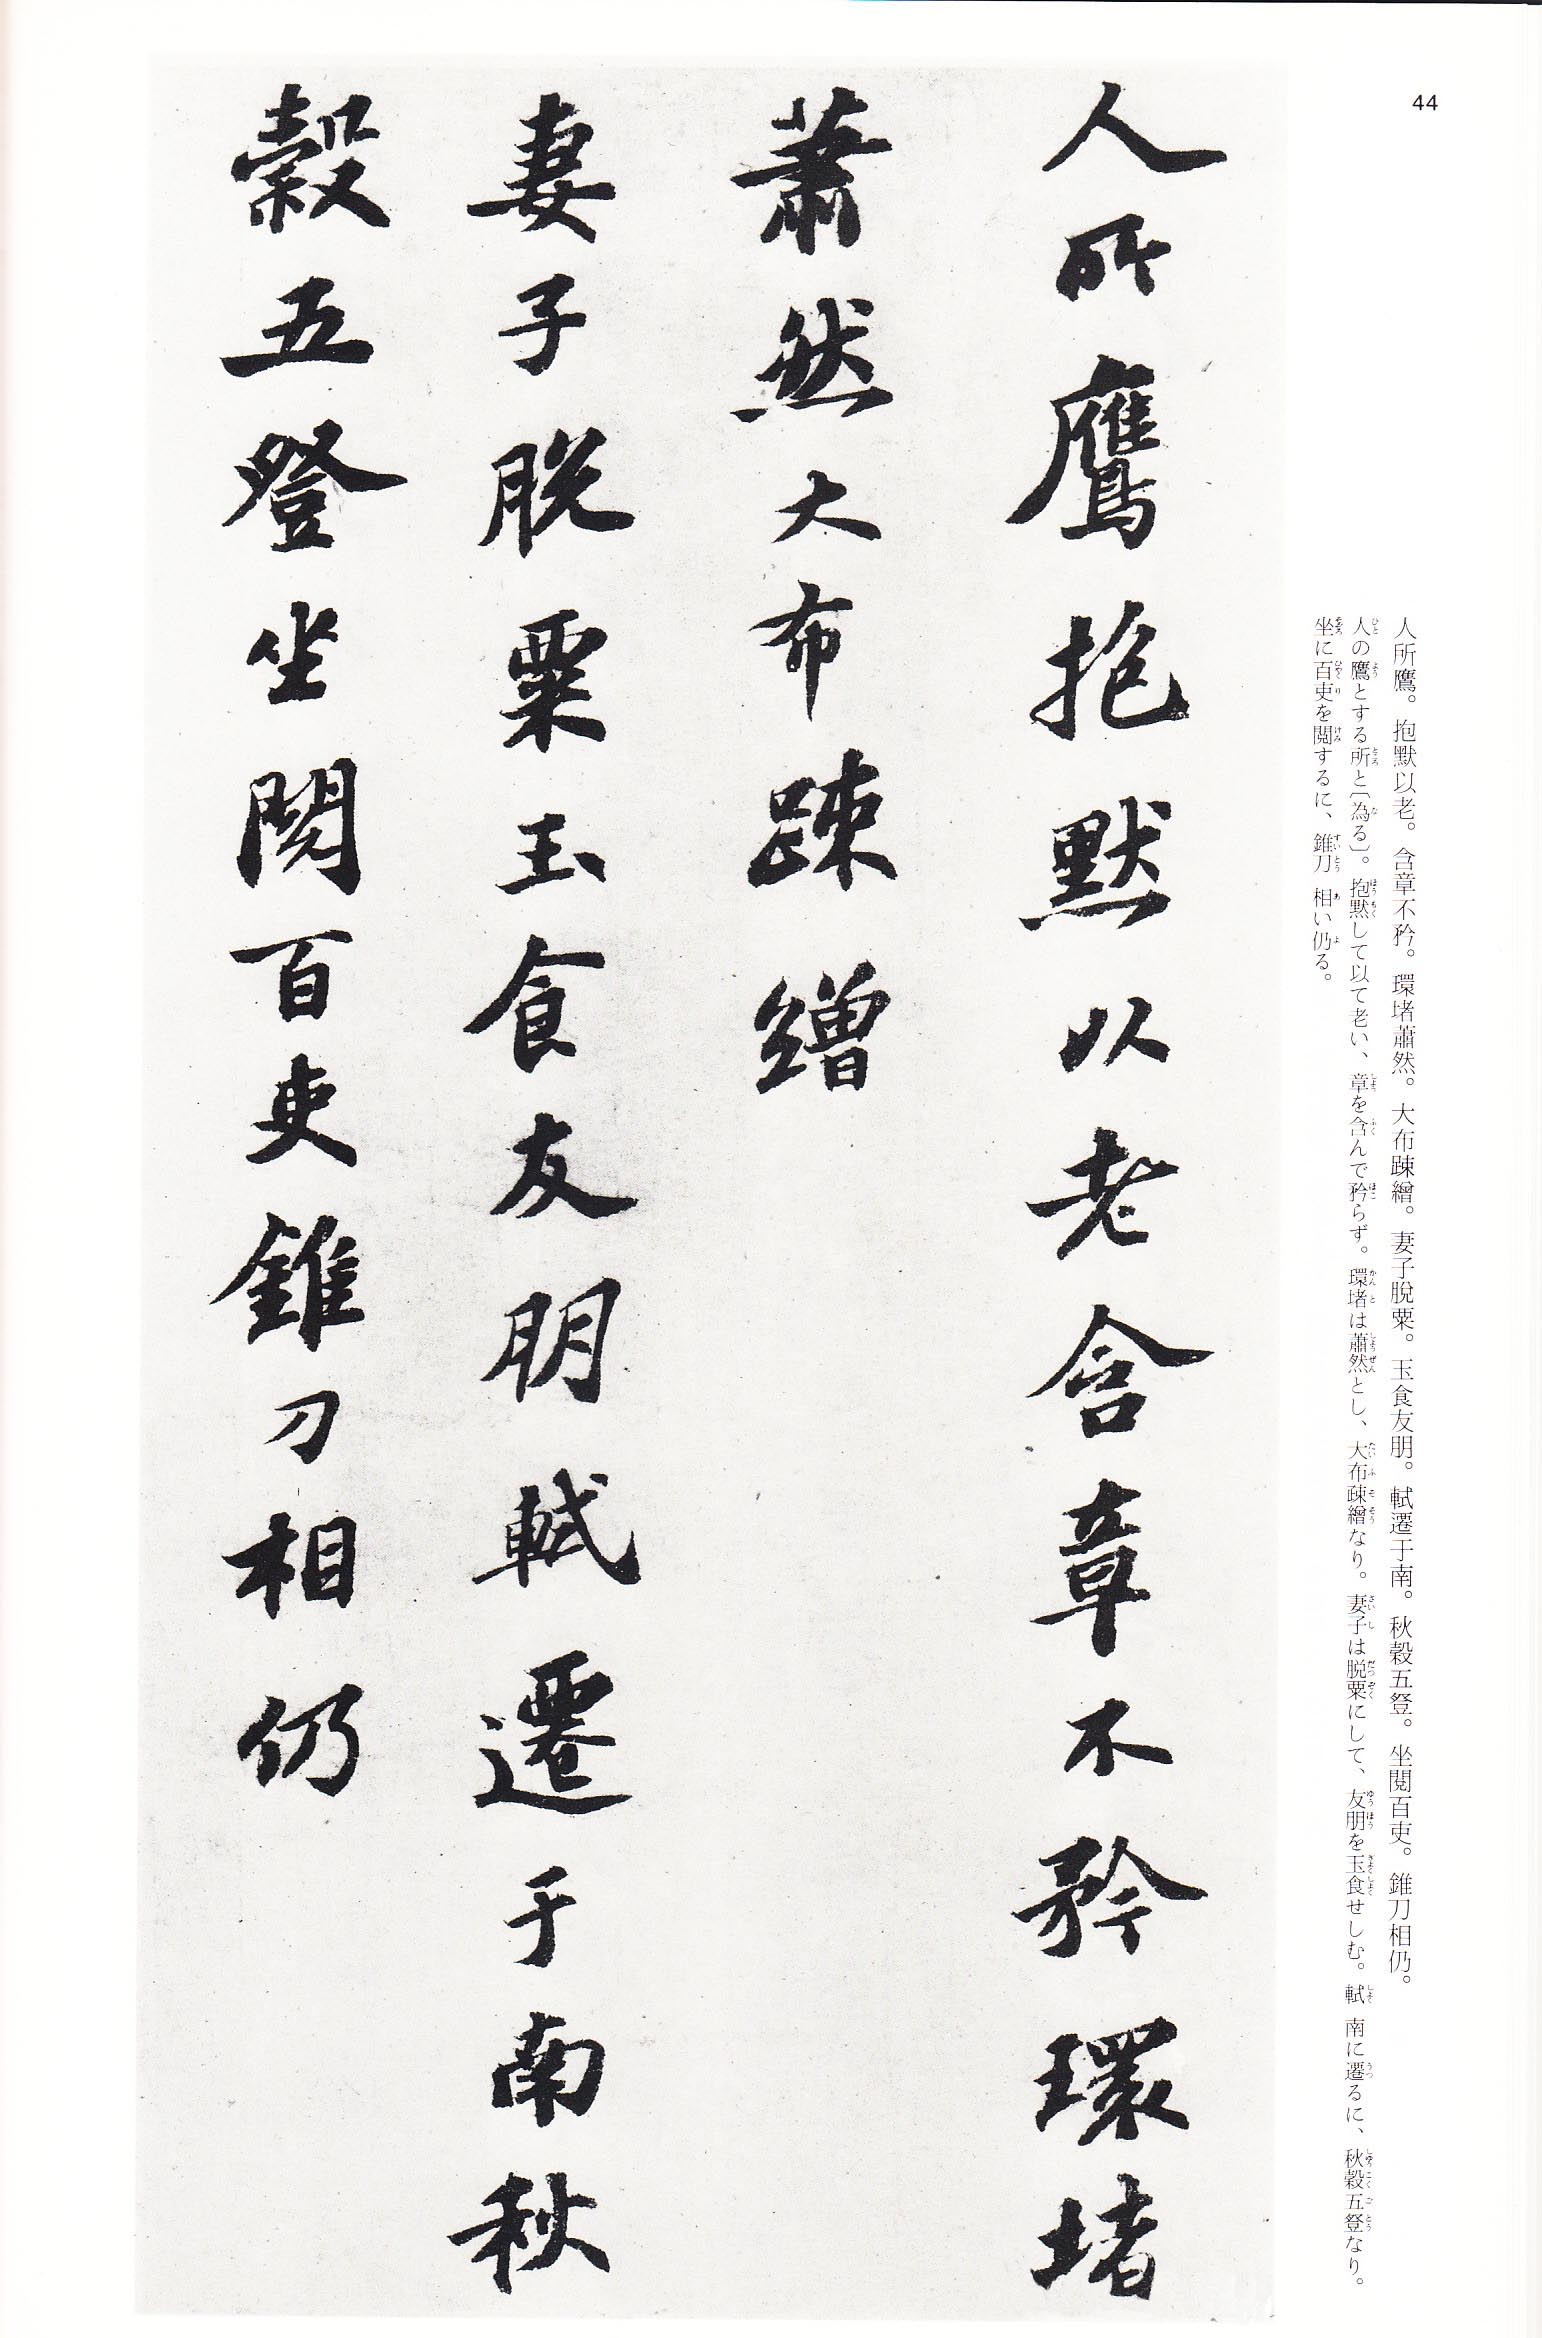 44
人所鷹。抱默以老。含章不矜。環堵蕭然。大布踈繒。妻子脫粟。玉食友朋。軾遷于南。秋穀五登。坐閲百吏。錐刀相仍。
人の鷹とする所と〔為る〕。抱黙して以て老い、章を含んで矜らず。環堵は蕭然とし、大布疎繒なり。妻子は脱粟にして、友朋を玉食せしむ。軾 南に遷るに、秋穀五登なり。
坐に百吏を閲するに、錐刀 相い仍る。
人所鷹抱默以老含章不矜環堵
蕭然大布踈繒
妻子脫粟玉食友朋軾遷于南秋
穀五登坐閲百吏錐刀相仍